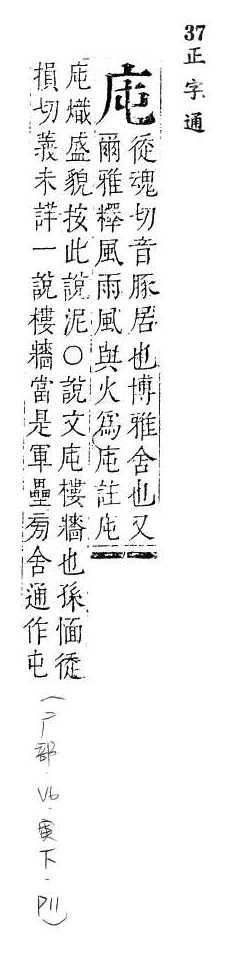 37正字通
庉
從魂切音豚居也博雅舍也又
爾雅釋風雨風與火爲庉註庉
庉熾盛貌按此說泥○說文庉樓牆也孫愐從
損切義未詳一說樓牆當是軍壘旁舍通作屯
(广部·V6·寅下·P11)